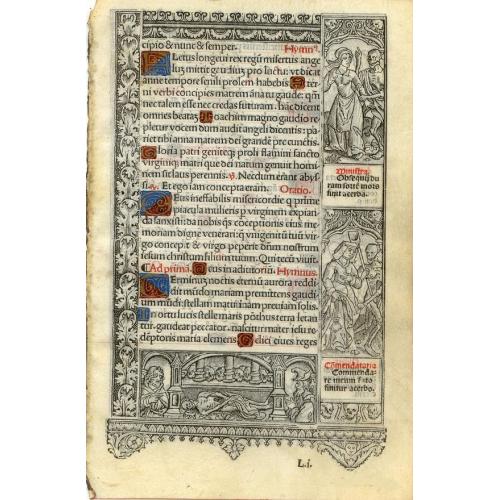 cipio & nunc & semper. Hymnꝰ
Letus longeui rex regū misertus ange
lū mittit
anne temporę senili prolem habebis Eter
ni verbi concipies matrem āna tu gaude: qm̄
nec talem esse nec credas futuram. hāc dicent
omnes beatā; Ioachim magno gaudio re
pletur vocem dum audit angeli dicentis: pa
riet tibi anna matrem dei grande p̄re cunctis.
Gloria patri genitęqꝫ proli flamini sancto
virginiqꝫ matri que dei natum genuit homi
nem sit laus perennis. ℣. Necdum erant abys
si. ℟. Et ego iam concepta eram. Oratio.
Deus ineffabilis misericordie q̄ prime
piacula mulieris p̄ virginem expian
da sanxisti: da nobis q̄s cōceptionis eius me
moriam digne venerari: q̄ vnigenitū tuū vir
go concepit & virgo peperit dn̄m nostrum
iesum christum filium tuum. Qui tecū viuit.
¶ Ad primā. Deus in adiutoriū. Hymnus.
Eterminus noctis eternū aurora reddi
dit mūdo mariam premittens gaudi
um mūdi: stellam matutinam preuiam solis.
In ortu lucis stelle maris pōthus terra letan
tur. gaudeat peccator. nascitur mater iesu re
demptoris maria clemens. Gelici ciues reges
Ministra.
Obsequij du
ram forte mors
finit acerba.
Cōmendataria
Commenda-
re
finitur acerbo.
L.i.